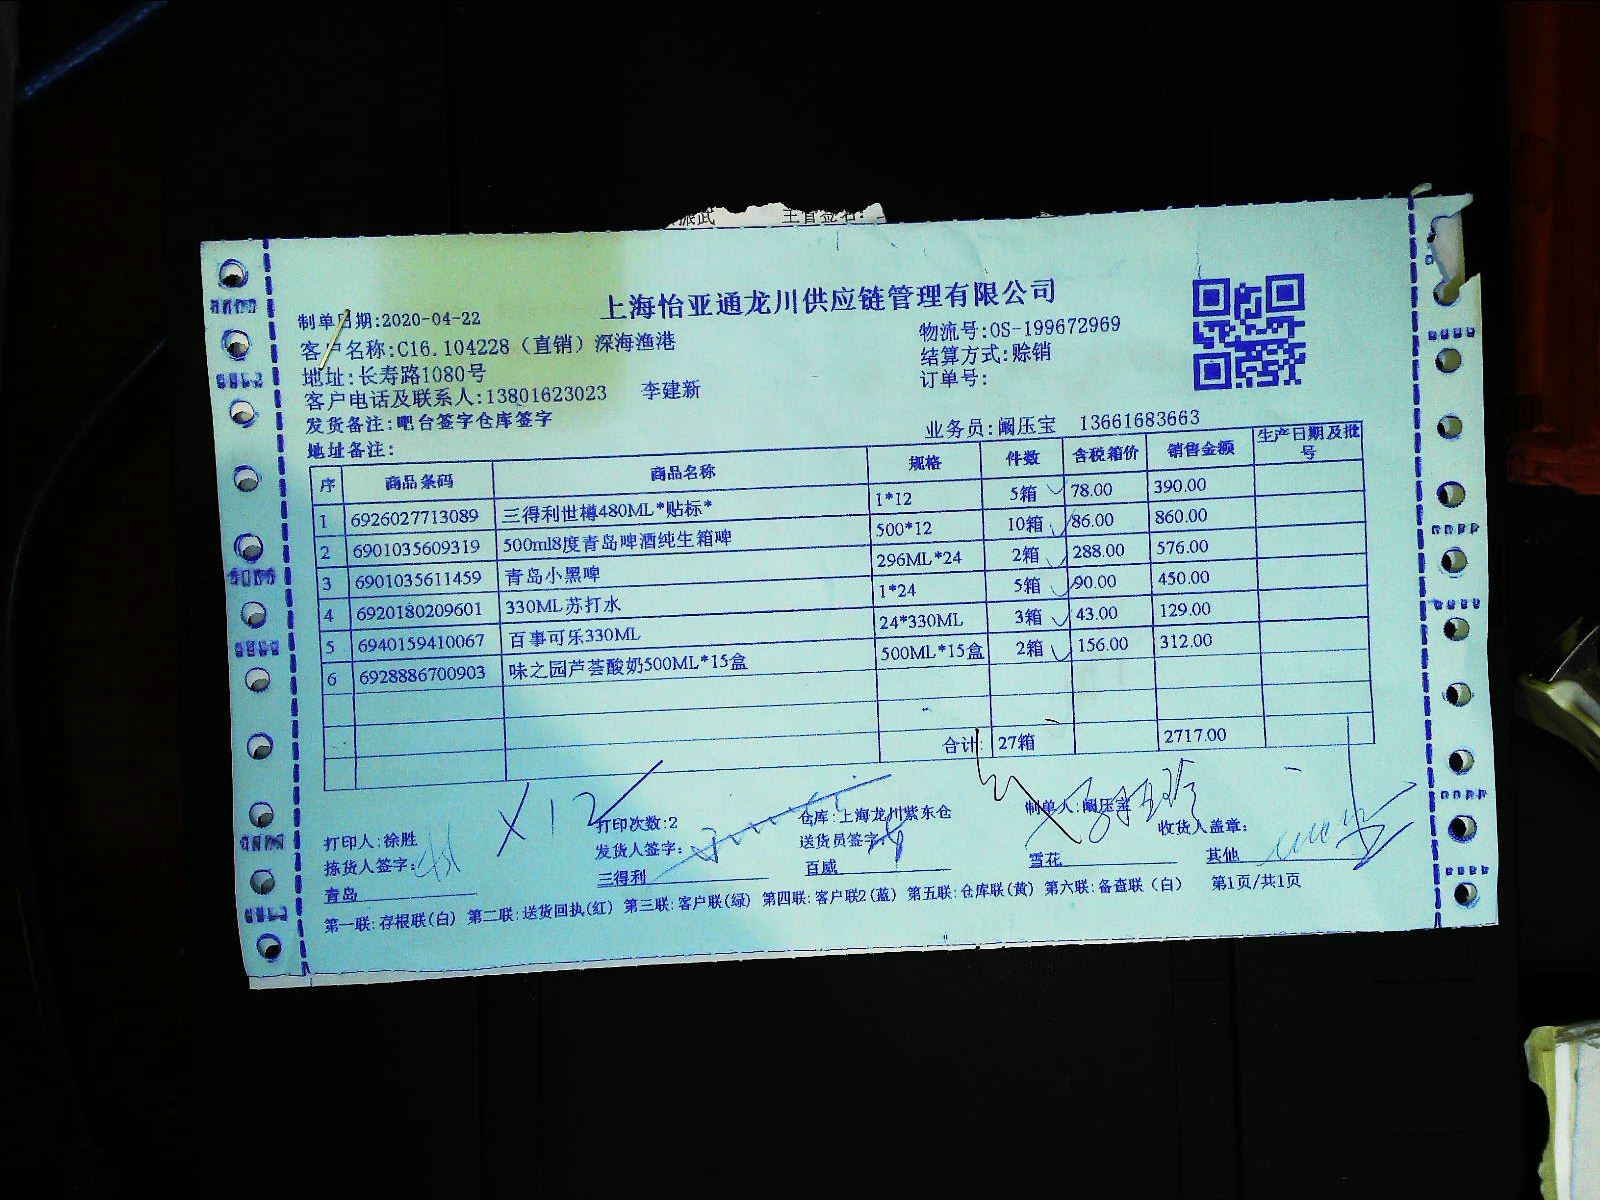 派武 主管签名:
上海怡亚通龙川供应链管理有限公司
制单日期:2020-04-22
物流号:OS-199672969
客户名称:C16.104228（直销）深海渔港
结算方式:赊销
地址:长寿路1080号
订单号:
客户电话及联系人:13801623023 李建新
发货备注:吧台签字仓库签字
业务员:阚压宝 13661683663
地址备注:
序 商品条码 商品名称 规格 件数 含税箱价 销售金额 生产日期及批号
1 6926027713089 三得利世樽480ML*贴标* 1*12 5箱 78.00 390.00
2 6901035609319 500ml8度青岛啤酒纯生箱啤 500*12 10箱 86.00 860.00
3 6901035611459 青岛小黑啤 296ML*24 2箱 288.00 576.00
4 6920180209601 330ML苏打水 1*24 5箱 90.00 450.00
5 6940159410067 百事可乐330ML 24*330ML 3箱 43.00 129.00
6 6928886700903 味之园芦荟酸奶500ML*15盒 500ML*15盒 2箱 156.00 312.00
合计: 27箱 2717.00
X12
打印人:徐胜 打印次数:2 仓库:上海龙川紫东仓 制单人:阚压宝
拣货人签字: 发货人签字: 送货员签字: 收货人盖章:
青岛 三得利 百威 雪花 其他
第一联:存根联(白) 第二联:送货回执(红) 第三联:客户联(绿) 第四联:客户联2(蓝) 第五联:仓库联(黄) 第六联:备查联（白） 第1页/共1页